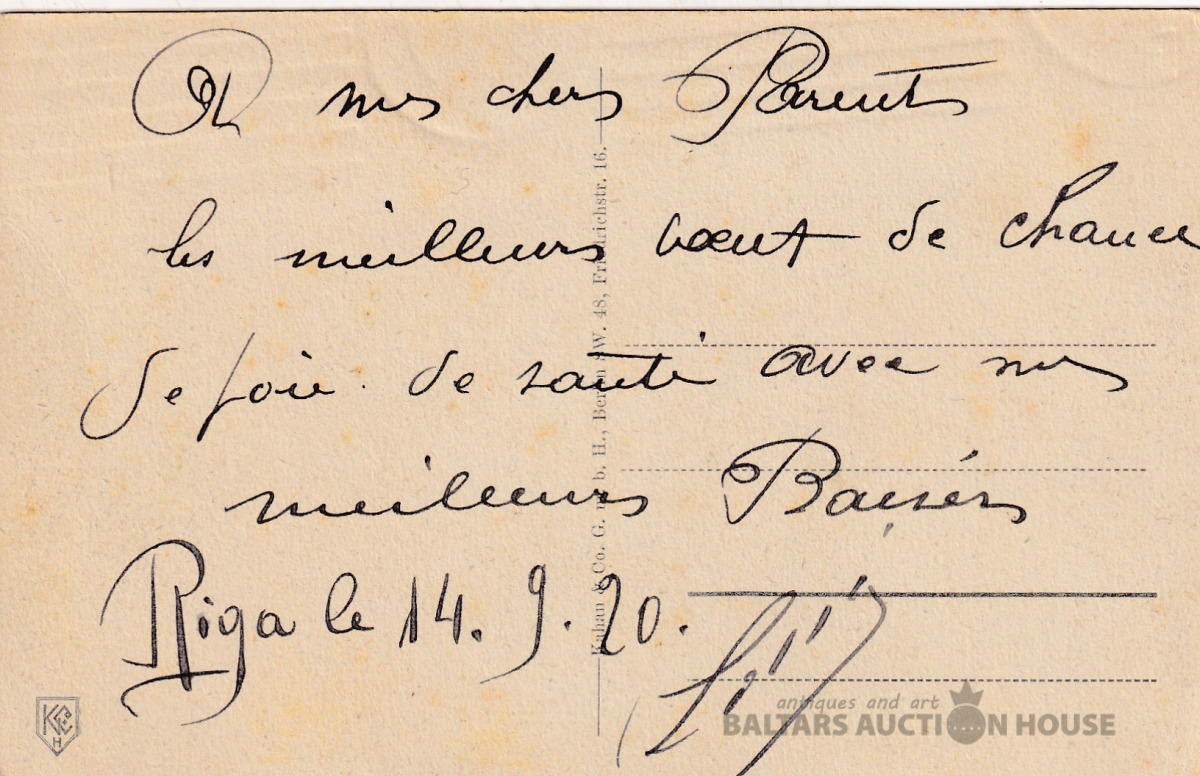 A mes chers Parents
les meilleurs vœux de chance
de joie de santé avec mes
meilleurs Baisers
Riga le 14. 9. 20.
Kahan & Co. G. m. b. H., Berlin SW. 48, Friedrichstr. 16.
K&C
H
antiques and art
BALTARS AUCTION HOUSE